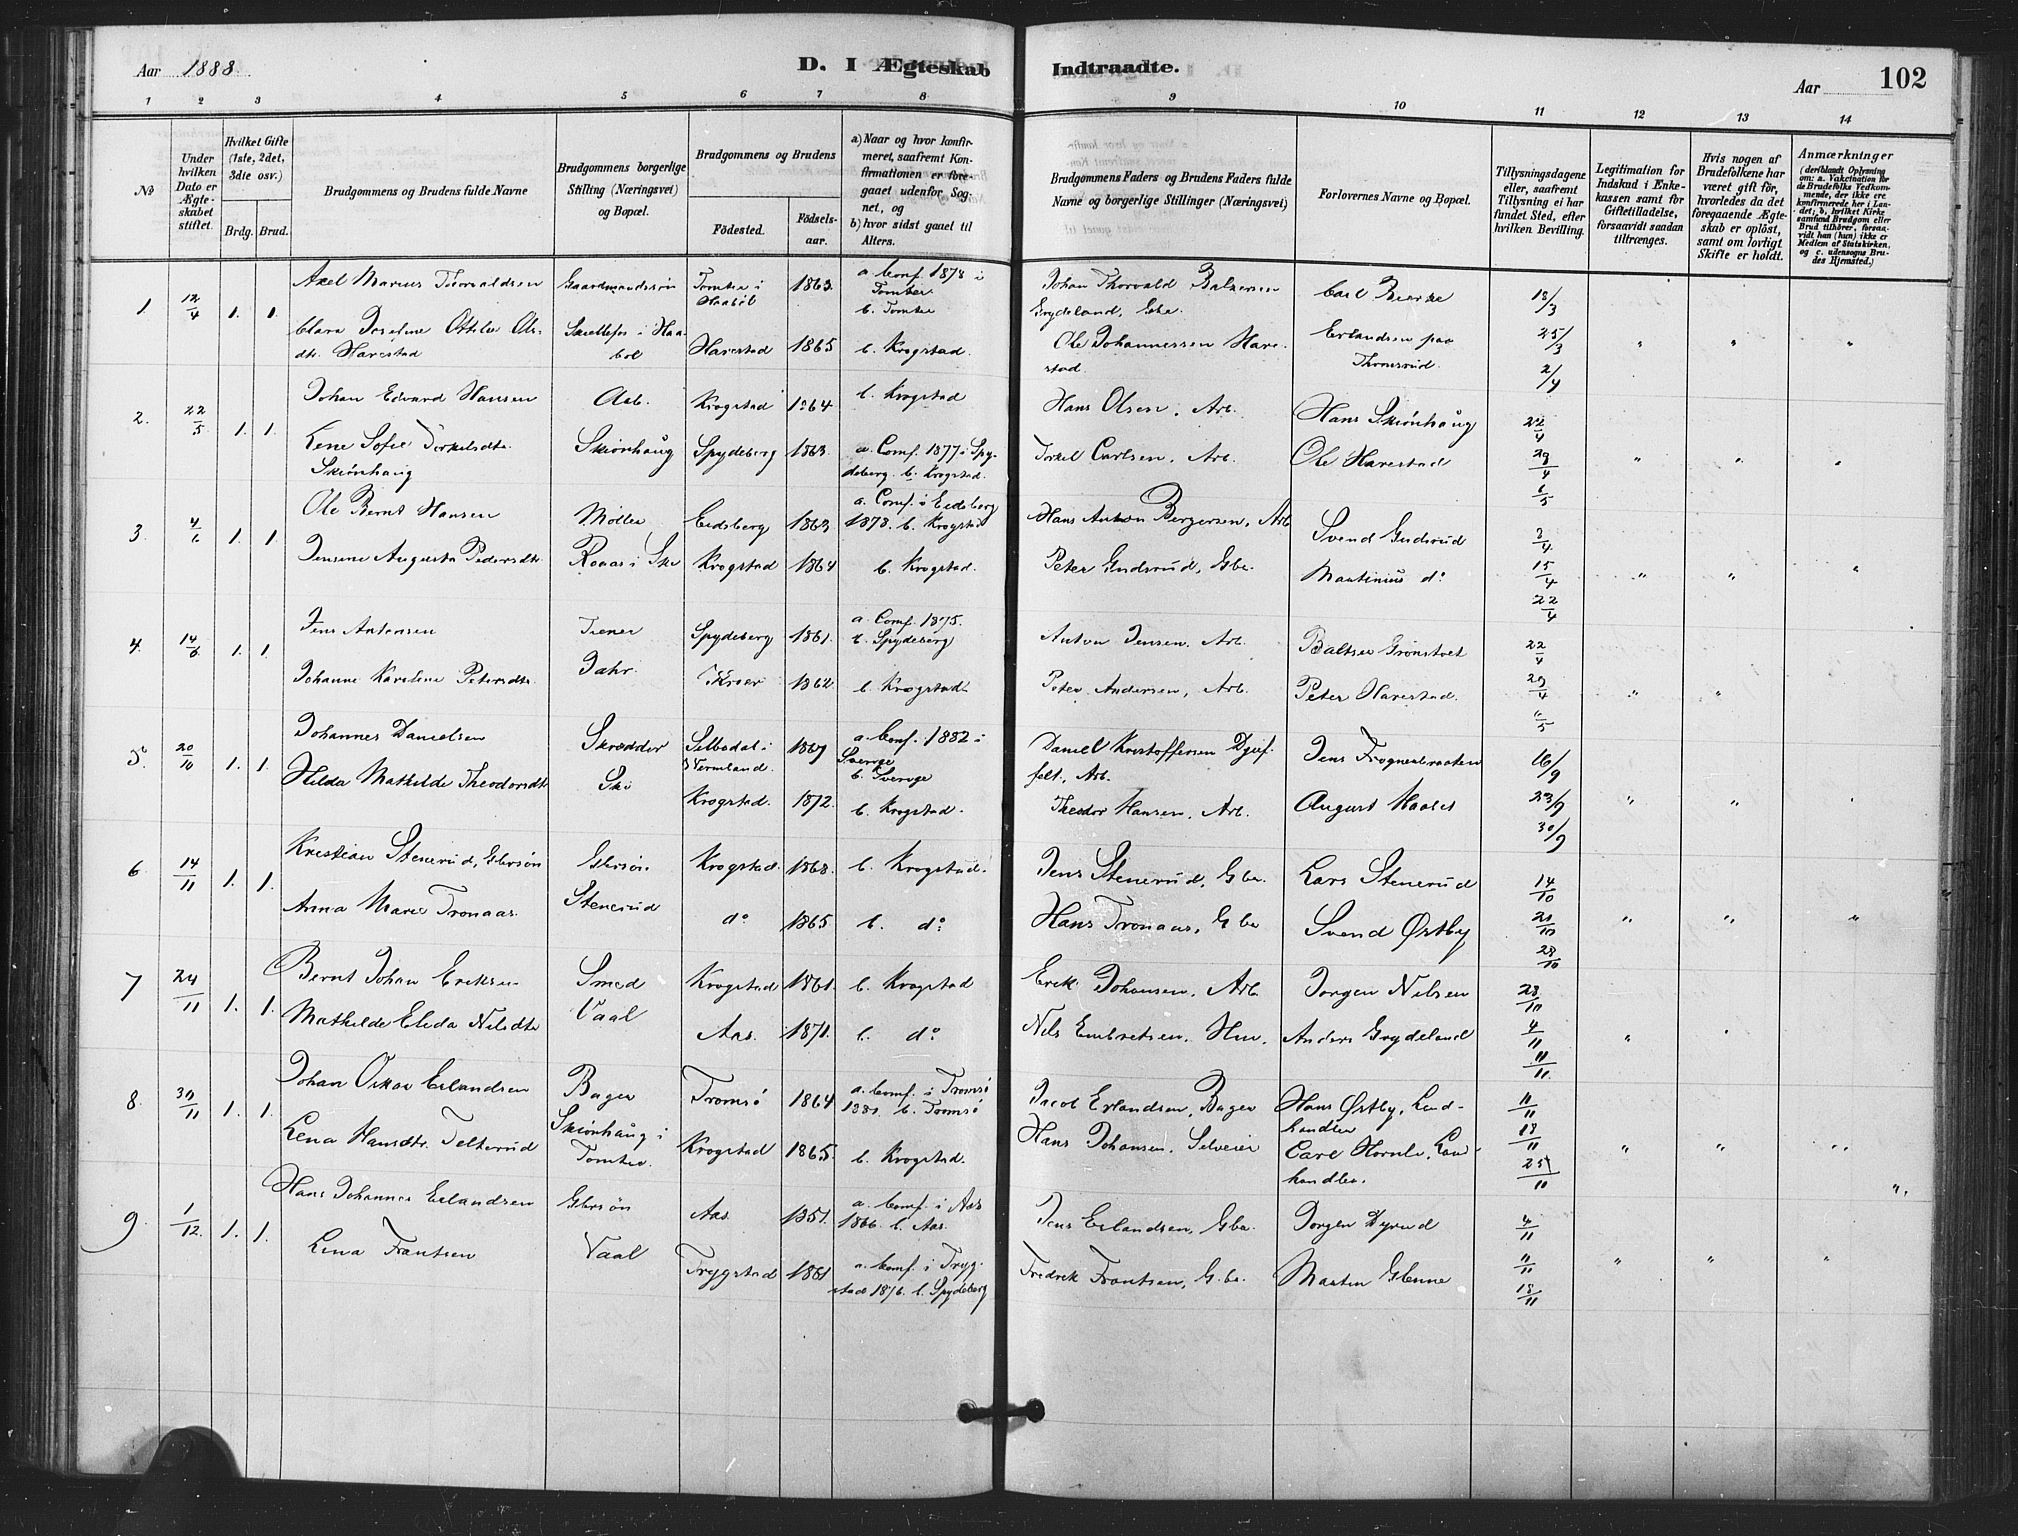 Aar 1888.
D. I Ægteskab Indtraadte.
Aar 102
1 2 3 4 5 6 7 8 9 10 11 12 13 14
No
Under hvilken Dato er Ægteskabet stiftet.
Hvilket Gifte (1ste, 2det, 3die osv.)
Brdg. Brud.
Brudgommens og Brudens fulde Navne
Brudgommens borgerlige Stilling (Næringsvei) og Bopæl.
Brudgommens og Brudens
Fødested.
Fødselsaar.
a) Naar og hvor konfirmeret, saafremt Konfirmationen er foregaaet udenfor Sognet, og
b) hvor sidst gaaet til Alters.
Brudgommens Faders og Brudens Faders fulde Navne og borgerlige Stillinger (Næringsvei)
Forlovernes Navne og Bopæl.
Tillysningsdagene eller, saafremt Tillysning ei har fundet Sted, efter hvilken Bevilling.
Legitimation for Indskud i Enkekassen samt for Giftetilladelse, forsaavidt saadan tiltrænges.
Hvis nogen af Brudefolkene har været gift før, hvorledes da det foregaaende Ægteskab er opløst, samt om lovligt Skifte er holdt.
Anmærkninger (deriblandt Oplysning om: a. Vakcination for de Brudefolks Vedkommende, der ikke ere konfirmerede her i Landet; b. hvilket Kirkesamfund Brudgom eller Brud tilhører, forsaavidt han (hun) ikke er Medlem af Statskirken, og c. udensogns Brudes Hjemsted.)
1 12/4 1. 1. Axel Marius Thorvaldsen Gaardmandssøn Tomter i Haabøl 1863. a. Conf. 1878 i Tomter b. Tomter Johan Thorvald Balzersen Grydeland, Gbr. Carl Bjerke 18/3
Clara Josefine Ottilie Olsdtr. Harestad Skiellefos i Haabol Harestad 1865 b. Krogstad. Ole Johannessen Harestad. Erlandsen paa Thomsrud. 25/3 2/4 " " "
2. 22/5 1. 1. Johan Edvard Hansen Arb. Krogstad 1864 b. Krogstad Hans Olsen, Arb. Hans Skiønhaug 22/4
Lene Sofie Torkelsdtr. Skiønhaug Skiønhaug Spydeberg 1863. a. Comf. 1877 i Spydeberg. b. Krogstad. Torkel Carlsen, Arb. Ole Harestad 29/4 6/5 " " "
3. 4/6 1. 1. Ole Bernt Hansen Møller Eidsberg 1863 a. Comf. i Eidsberg 1878. b. Krogstad Hans Anton Bergersen, Arb Svend Gudsrud 8/4
Jensine Augusta Pedersdtr. Raaas i Ski Krogstad 1864 b. Krogstad. Peter Gudsrud, Gbr. Martinius do 15/4 22/4 " " "
4. 14/6 1. 1. Jens Antonsen Tiener Spydeberg 1861. a. Comf. 1875. b. Spydeberg Anton Jensen, Arb. Baltser Grønstvet 22/4
Johanne Karoline Petersdtr. Dahr. Kroer 1862. b. Krogstad. Peter Andersen, Arb. Peter Harestad. 29/4 6/5 " "
5. 20/10 1. 1. Johannes Danielsen Skrædder Silbodal i Vermland. 1867 a. Conf. 1882 i Sverige b. Sverige Daniel Kristoffersen Djupfelt, Arb. Jens Frognerbraaten 16/9
Hilda Mathilde Theodorsdtr. Ski Krogstad. 1872. b. Krogstad. Theodor Hansen, Arb. August Haaset 23/9 30/9 " " "
6 14/11 1. 1. Kristian Stenerud, Gbrsøn Gbrsøn Krogstad. 1868. b. Krogstad. Jens Stenerud, Gbr. Lars Stenerud 14/10
Anna Marie Tronaas. Stenerud do 1865 b. do Hans Tronaas, Gbr Svend Østby 21/10 28/10 " " "
7 24/11 1. 1. Bernt Johan Eriksen Smed Krogstad 1861. b. Krogstad Erik Johansen, Arb. Jørgen Nilsen 28/10
Mathilde Elida Nilsdtr Vaal Aas. 1871. b. do Nils Embretsen, Hm. Anders Grydeland 4/11 11/11. " "
8. 30/11 1. 1. Johan Oskar Erlandsen Bager Tromsø 1864 a. Comf. i Tromsø 1880. b. Tromsø Jacob Erlandsen, Bager Hans Østby, Landhandler 11/11
Lena Hansdtr. Felterud Skiønhaug i Tomter. Krogstad 1865. b. Krogstad. Hans Johansen, Selveier Carl Hornli, Landhandler. 18/11 25/10 " " "
9. 1/12. 1. 1. Hans Johannes Erlandsen Gbrsøn Aas. 1851. a. Comf. i Aas 1866. b. Aas. Jens Erlandsen, Gbr. Jørgen Dyrud 4/11
Lina Frantsen Vaal Trygstad 1861 a. Comf. i Trygstad 1876. b. Spydeberg Fredrik Frantsen, Gbr. Martin Glenne 11/11 18/11 " " "